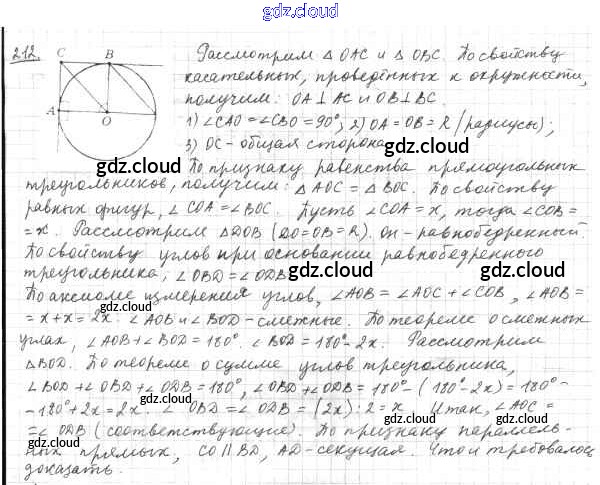 gdz.cloud
212.
C B
A O
Рассмотрим △ OAC и △ OBC. По свойству
касательных, проведённых к окружности,
получим: OA ⊥ AC и OB ⊥ BC.
1) ∠CAO = ∠CBO = 90°; 2) OA = OB = R (радиусы);
3) OC - общая сторона.
gdz.cloud
gdz.cloud
По признаку равенства прямоугольных
треугольников, получим: △ AOC = △ BOC. По свойству
равных фигур, ∠ COA = ∠ BOC. Пусть ∠ COA = x, тогда ∠ COB =
= x. Рассмотрим △DOB (DO = OB = R). Он - равнобедренный.
По свойству углов при основании равнобедренного
треугольника, ∠ OBD = ∠ ODB.
gdz.cloud
gdz.cloud
По аксиоме измерения углов, ∠ AOB = ∠ AOC + ∠ COB, ∠ AOB =
= x + x = 2x. ∠ AOB и ∠ BOD - смежные. По теореме о смежных
углах, ∠ AOB + ∠ BOD = 180°. ∠ BOD = 180° - 2x. Рассмотрим
△BOD. По теореме о сумме углов треугольника,
∠ BOD + ∠ OBD + ∠ ODB = 180°, ∠ OBD + ∠ ODB = 180° - (180° - 2x) = 180° -
- 180° + 2x = 2x. ∠ OBD = ∠ ODB = (2x) : 2 = x. Итак, ∠ AOC =
gdz.cloud
gdz.cloud
= ∠ ODB (соответствующие). По признаку параллель-
ных прямых, CO || BD, AD - секущая. Что и требовалось
доказать.
gdz.cloud
gdz.cloud